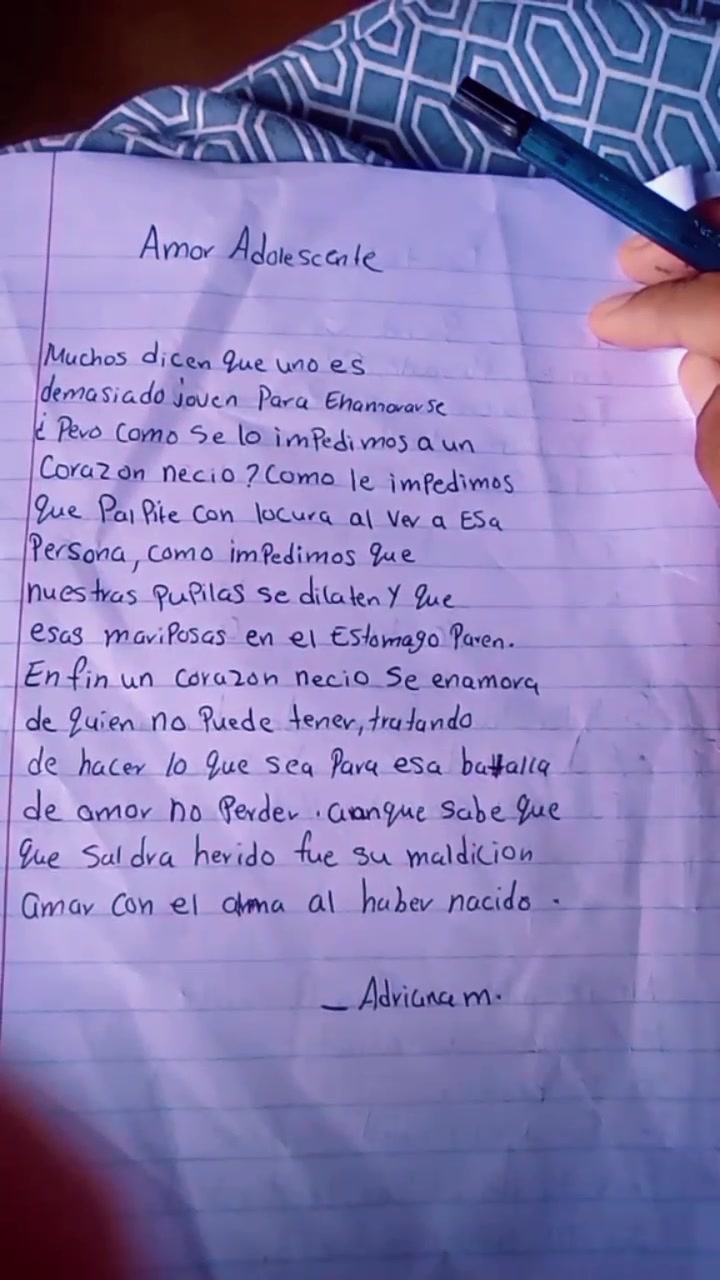 Amor Adolescente
Muchos dicen que uno es
demasiado joven Para Enamorarse
¿ Pero como se lo impedimos a un
Corazon necio? Como le impedimos
que PalPite con locura al ver a ESa
Persona, como impedimos que
nuestras pupilas se dilaten y que
esas mariposas en el Estomago Paren.
En fin un corazon necio se enamora
de quien no Puede tener, tratando
de hacer lo que sea Para esa batalla
de amor no Perder. aunque sabe que
que Saldra herido fue su maldicion
amar con el alma al haber nacido.
_ Adriana m.